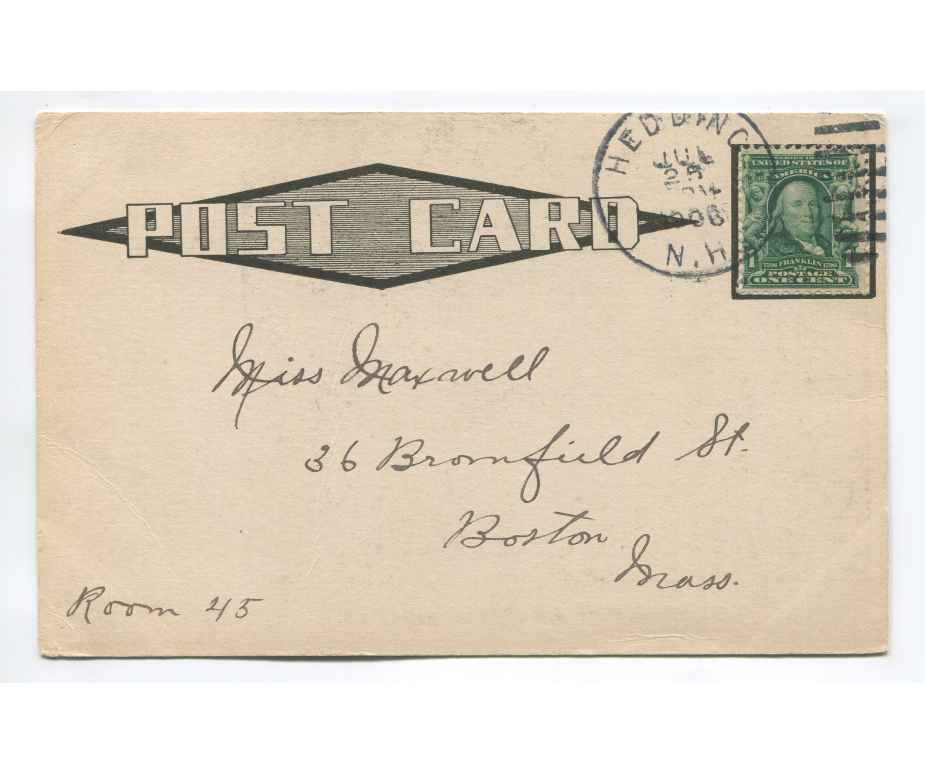 HEDDING
JUL
25
1906
N.H.
POST CARD
SERIES OF 1902
UNITED STATES OF
AMERICA
1 1706 FRANKLIN 1790 1
POSTAGE
ONE CENT
Miss Maxwell
36 Bromfield St.
Boston
Mass.
Room 45